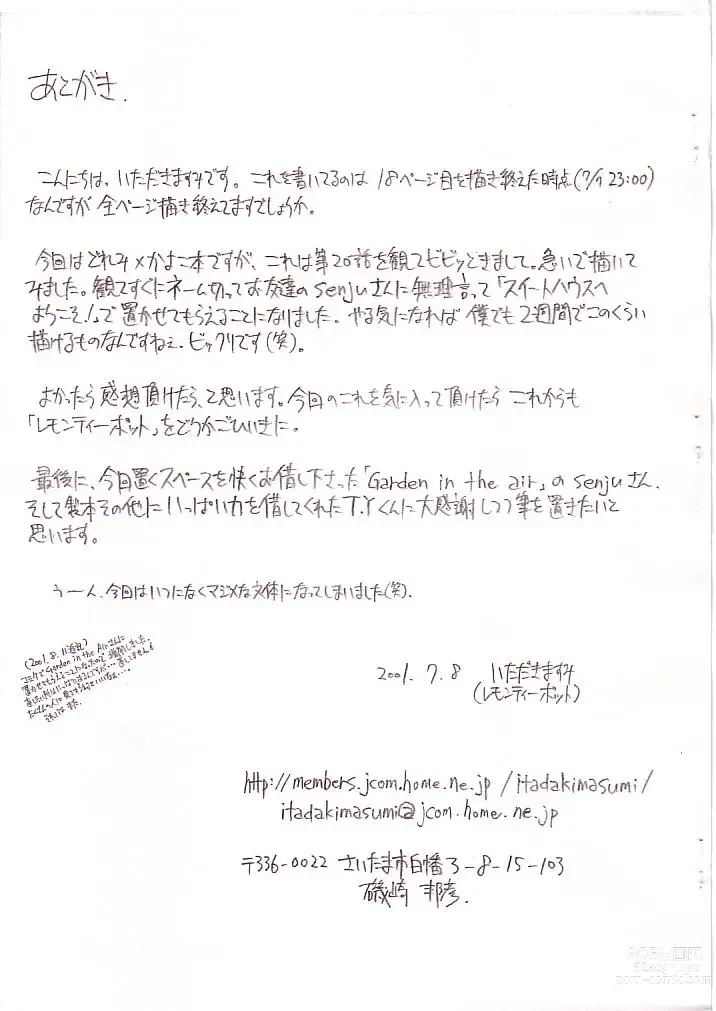 あとがき.
こんにちは、いただきますみです。これを書いてるのは 18ページ目を描き終えた時点(7/7 23:00)
なんですが 全ページ描き終えてますでしょうか。
今回はどれみ×かよこ本ですが、これは第20話を観てビビッときまして。急いで描いて
みました。観てすぐにネーム切ってお友達のsenjuさんに無理言って「スイートハウスへ
ようこそ!」で置かせてもらえることになりました。やる気になれば 僕でも2週間でこのくらい
描けるものなんですねぇ。ビックリです(笑)。
よかったら感想頂けたら、と思います。今回のこれを気に入って頂けたら これからも
「レモンティーポット」をどうかごひいきに。
最後に、今回置くスペースを快くお借し下さった「Garden in the air」のsenjuさん、
そして製本その他にいっぱい力を借してくれたT.Yくんに大感謝しつつ筆を置きたいと
思います。
うーん、今回はいつになくマジメな文体になってしまいました(笑).
(2001.8.11追記)
コミケで Garden in the Airさんに
2001.7.8 いただきますみ
(レモンティーポット)
http://members.jcom.home.ne.jp/itadakimasumi/
itadakimasumi@jcom.home.ne.jp
〒336-0022 さいたま市白幡3-8-15-103
磯崎 邦彦.